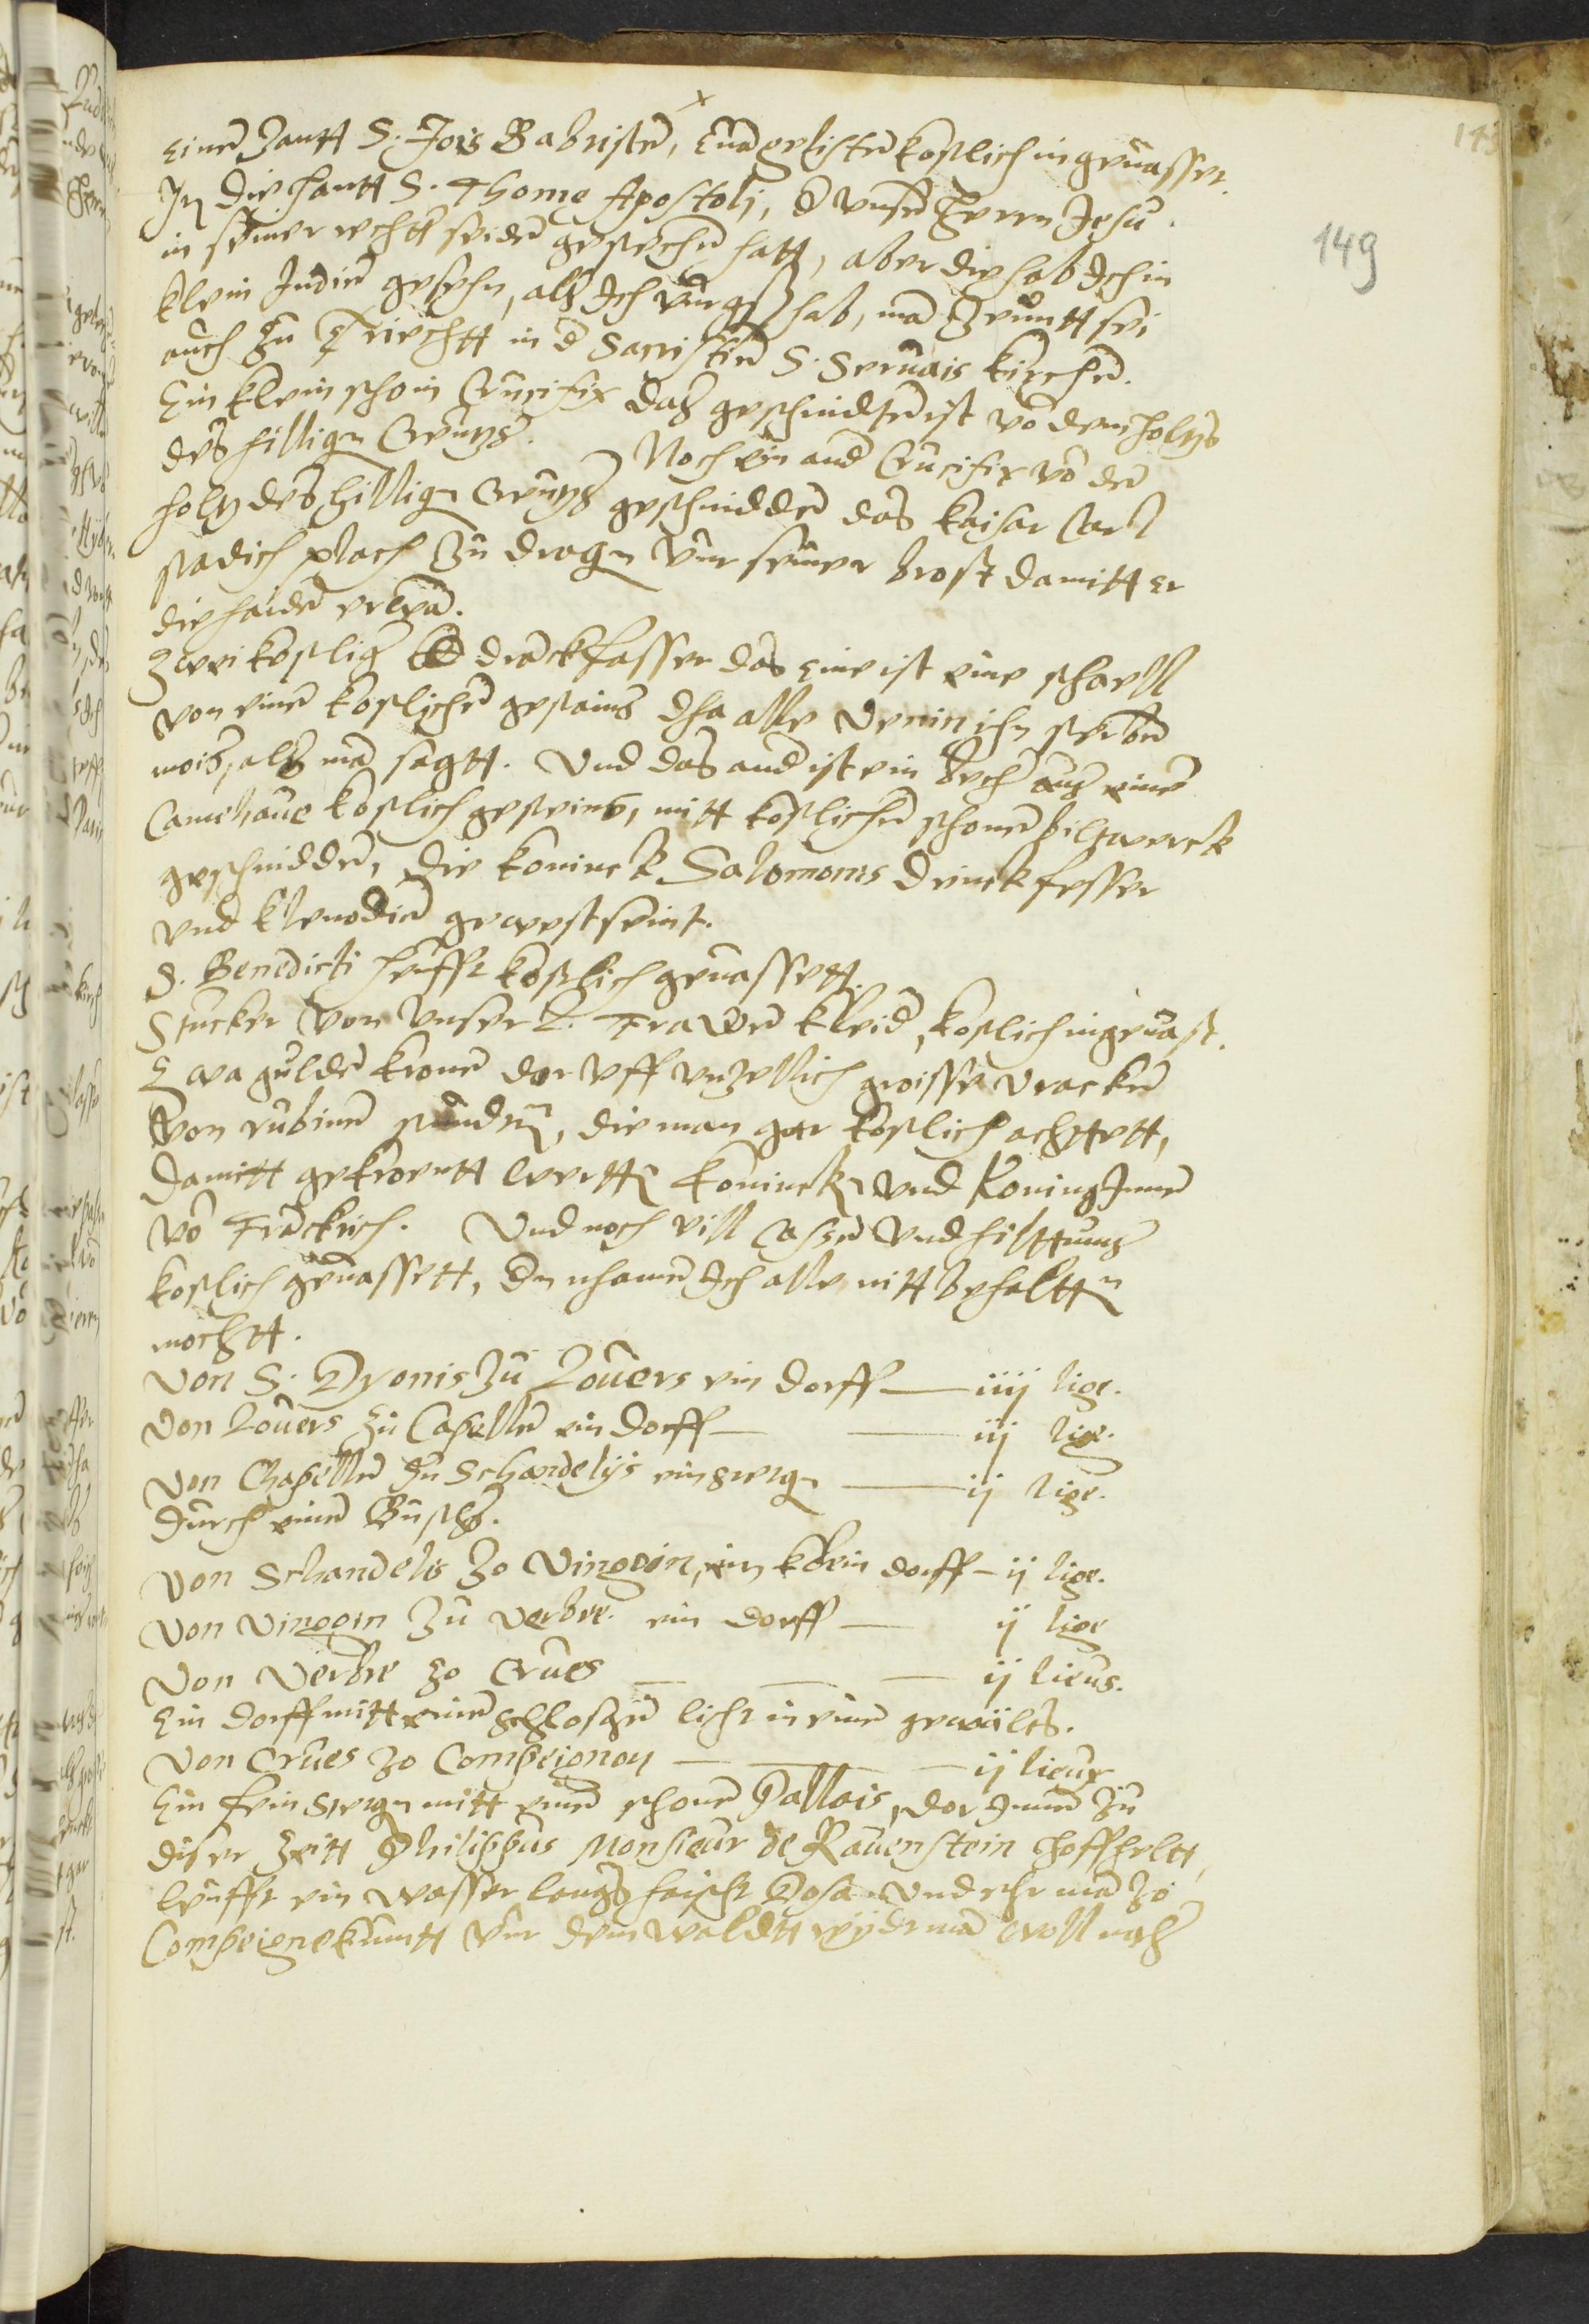 143
149
einen zantt S. Jois Babtisten, Euangelisten kostlich ingeuasset.
Jn die hantt S. Thome Apostoli, d vnsen Herrn Jesu
in seiner rechtt seiden gestechen hatt, aber die hab Jch in
klein Jndien gesehn, als Jch vurgß hab, man zeuntt sei
auch zu Triechtt in d Sacristien S. Seruais kirchen.
Ein klein schoin Crucifix das geschnidten ist vo dem holtzs
des hilligen Creutzs. Noch ein and Crucifix vo den
holtz des hilligen Creutzs geschnidden das kaisar Carl
stadich plach zu dragen vur seiner brost damitt er
die haiden verwan.
Zwei kostlig dranckfasser das eine ist eine schaell
von einen kostlichen gestains dha alle Venin ihn sterben
mois, als man sagtt. Vnd das and ist ein becher aus einen
Camehaue kostlich gesteins, mitt kostlichen schonen biltwerck
geschnidden, die koninck Salomones drinckfesser
vnd klenodien gewest seint.
S. Benedicti heufft kostlich geuassett.
Stucker von vnser L. Frawen kleid, kostlich ingeuast.
Ewa gulden kronen dar vff vnzellich groisse vracken
von rubinen stunden, die man gar kostlich achttett,
damitt gekroentt werttn konincken vnd koninginnen
vo Franckrich. Vnd noch vill Casen vnd hilttumbs
kostlich geuassett, der nhamen Jch alle nitt behalttn
mochtt.
Von S. Dyonis zu Louers ein dorff — iiij lige.
Von Louers zu Capellen ein dorff — — iij lige.
Von Chapellen zu Schandelijs ein stetgn — ij lige.
durch einen Buschs.
Von Schandelis zo Vingoin, ein klein dorff — ij lige.
Von Vingoin zu Verbre. ein dorff — ij lige
Von Verbre zo Crues — — — ij lieus.
Ein dorff mitt einen schloszen licht in einen gewuilts.
Von Crues zo Compeignoy — — — ij lieux
Ein fein stetgn mitt einen schonen Pallais, dar Jnnen zu
diser zeitt Philippus Monsieur de Rauenstein hoffheltt,
leufft ein wasser langs haischt Dosa. Vnd ehr man zo
Compeigne kumtt vur dem waldtt rijdt man woll nahe